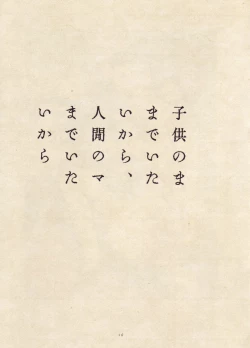 子供のま
までいた
いから、
人閒のマ
までいた
いから